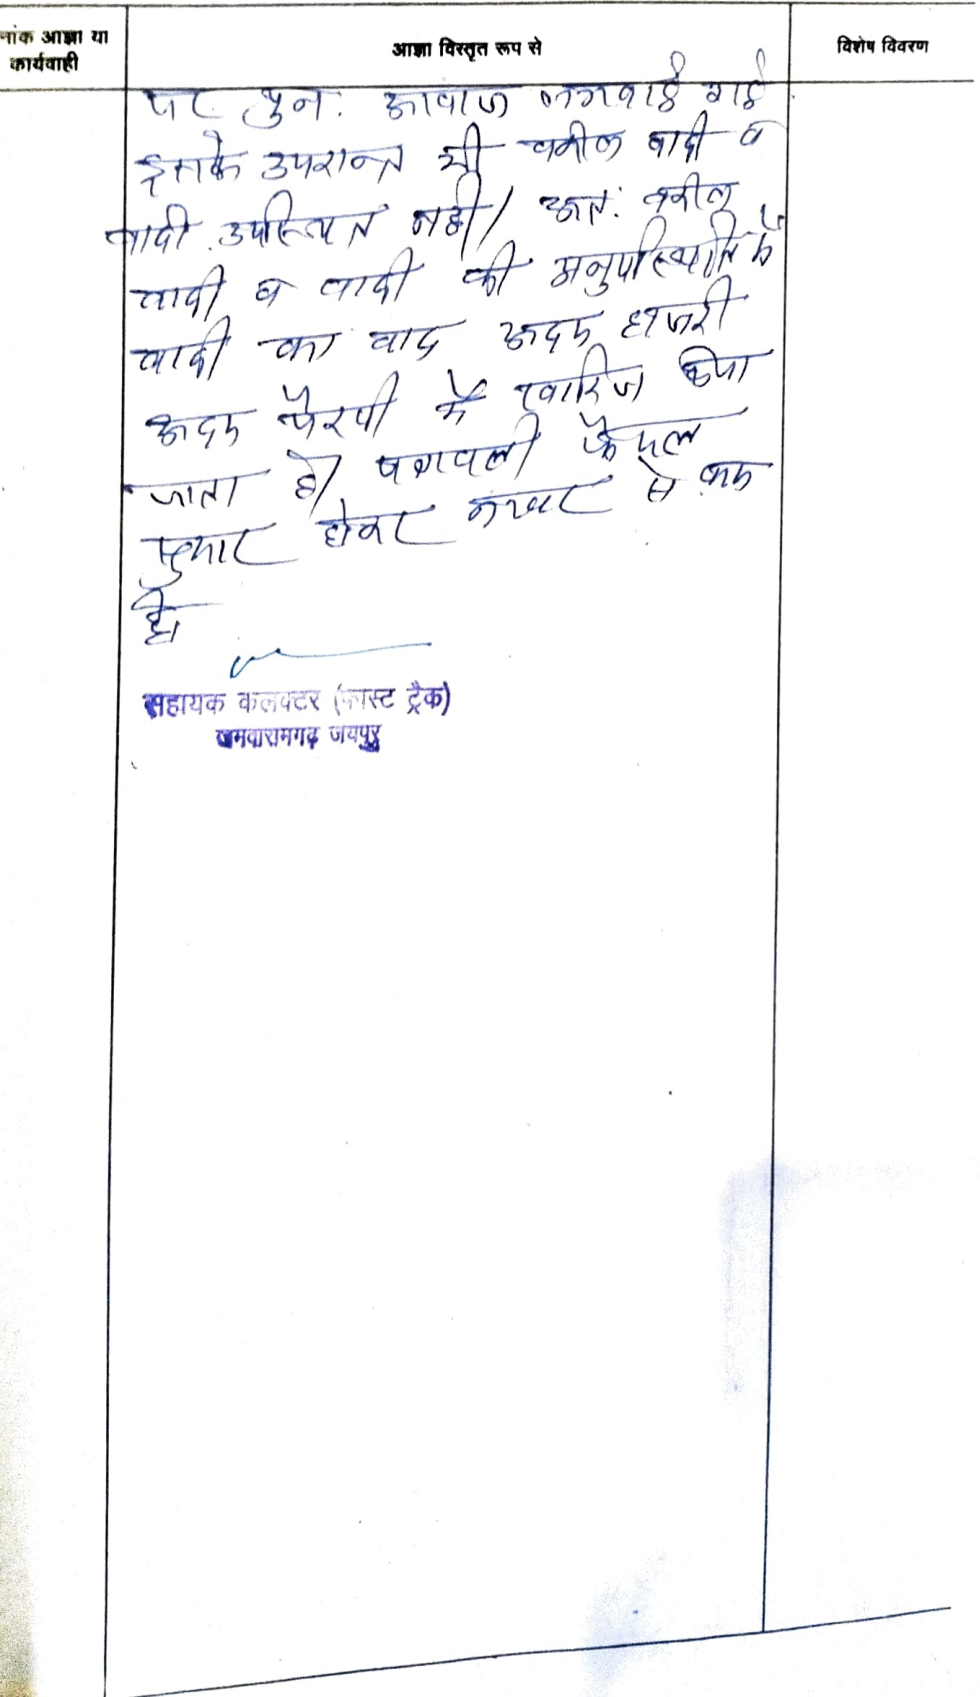 नांक आज्ञा या
कार्यवाही
आज्ञा विस्तृत रूप से
विशेष विवरण
पर पुन: आवाज लगवाई गई
इसके उपरान्त भी वकील वादी व
वादी उपस्थित नही/ अत: वकील
वादी व वादी की अनुपस्थिति में
वादी का वाद अदम हाजरी
अदम पैरवी में खारिज किया
जाता है/ पत्रावली फैसल
सुमार होकर नम्बर से कम
हो।
सहायक कलक्टर (फास्ट ट्रैक)
जमवारामगढ़ जयपुर